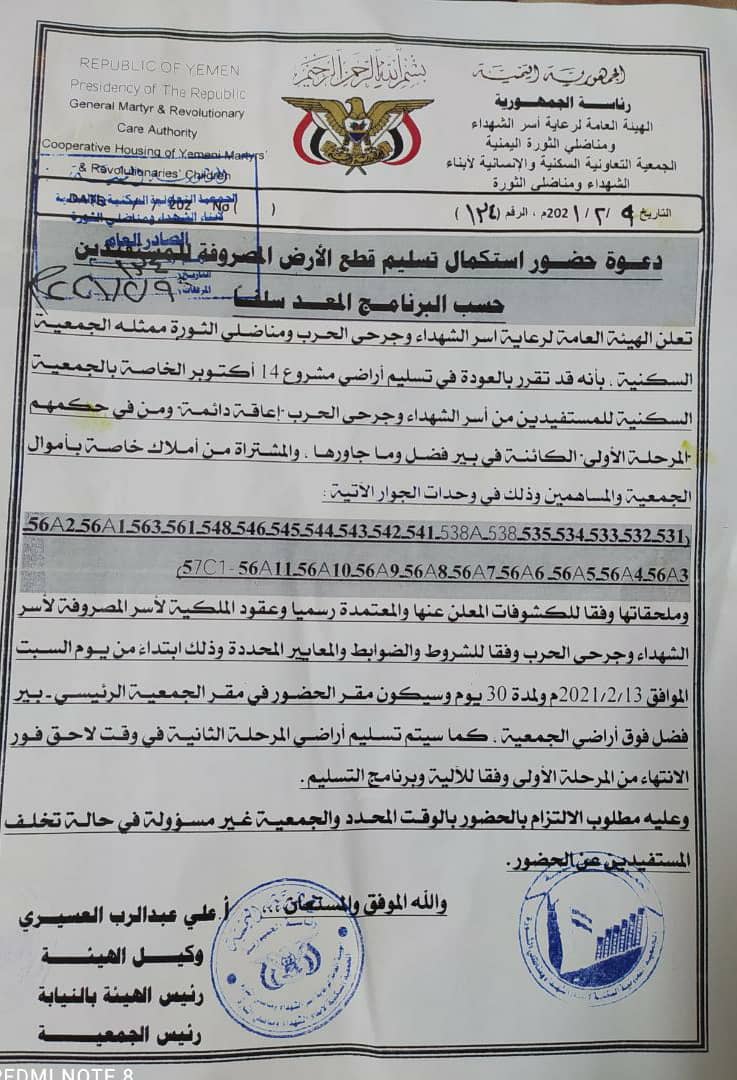 REPUBLIC OF YEMEN
Presidency of The Republic
General Martyr & Revolutionary
Care Authority
Cooperative Housing of Yemeni Martyrs'
& Revolutionaries' Children
بسم الله الرحمن الرحيم
الجمهورية اليمنية
رئاسة الجمهورية
الهيئة العامة لرعاية أسر الشهداء
ومناضلي الثورة اليمنية
الجمعية التعاونية السكنية والإنسانية لأبناء
الشهداء ومناضلي الثورة
DATE / / 202 No ( )
التاريخ ٩ /٢ /2021م ، الرقم (١٣٤)
الجمعية التعاونية السكنية والإنسانية
لأبناء الشهداء ومناضلي الثورة
الصادر العام
التاريخ:
المرفقات:
دعوة حضور استكمال تسليم قطع الأرض المصروفة للمستفيدين
حسب البرنامج المعد سلفا
تعلن الهيئة العامة لرعاية اسر الشهداء وجرحى الحرب ومناضلي الثورة ممثله الجمعية
السكنية ، بأنه قد تقرر بالعودة في تسليم أراضي مشروع 14 أكتوبر الخاصة بالجمعية
السكنية للمستفيدين من أسر الشهداء وجرحى الحرب "إعاقة دائمة" ومن في حكمهم
"المرحلة الأولى" الكائنة في بير فضل وما جاورها ، والمشتراة من أملاك خاصة بأموال
الجمعية والمساهمين وذلك في وحدات الجوار الآتية :
(531ـ532ـ533ـ534ـ535ـ538ـ538Aـ541ـ542ـ543ـ544ـ545ـ546ـ548ـ561ـ563ـ56A1ـ56A2ـ
56A3ـ56A4ـ56A5ـ56A6ـ56A7ـ56A8ـ56A9ـ56A10ـ56A11ـ57C1)
وملحقاتها وفقا للكشوفات المعلن عنها والمعتمدة رسميا وعقود الملكية لأسر المصروفة لأسر
الشهداء وجرحى الحرب وفقا للشروط والضوابط والمعايير المحددة وذلك ابتداءً من يوم السبت
الموافق 2021/2/13م ولمدة 30 يوم وسيكون مقر الحضور في مقر الجمعية الرئيسي ـ بير
فضل فوق أراضي الجمعية ، كما سيتم تسليم أراضي المرحلة الثانية في وقت لاحق فور
الانتهاء من المرحلة الأولى وفقا للآلية وبرنامج التسليم .
وعليه مطلوب الالتزام بالحضور بالوقت المحدد والجمعية غير مسؤولة في حالة تخلف
المستفيدين عن الحضور .
والله الموفق والمستعان ،،،
أ. علي عبدالرب العسيري
وكيل الهيئة
رئيس الهيئة بالنيابة
رئيس الجمعية
REDMI NOTE 8